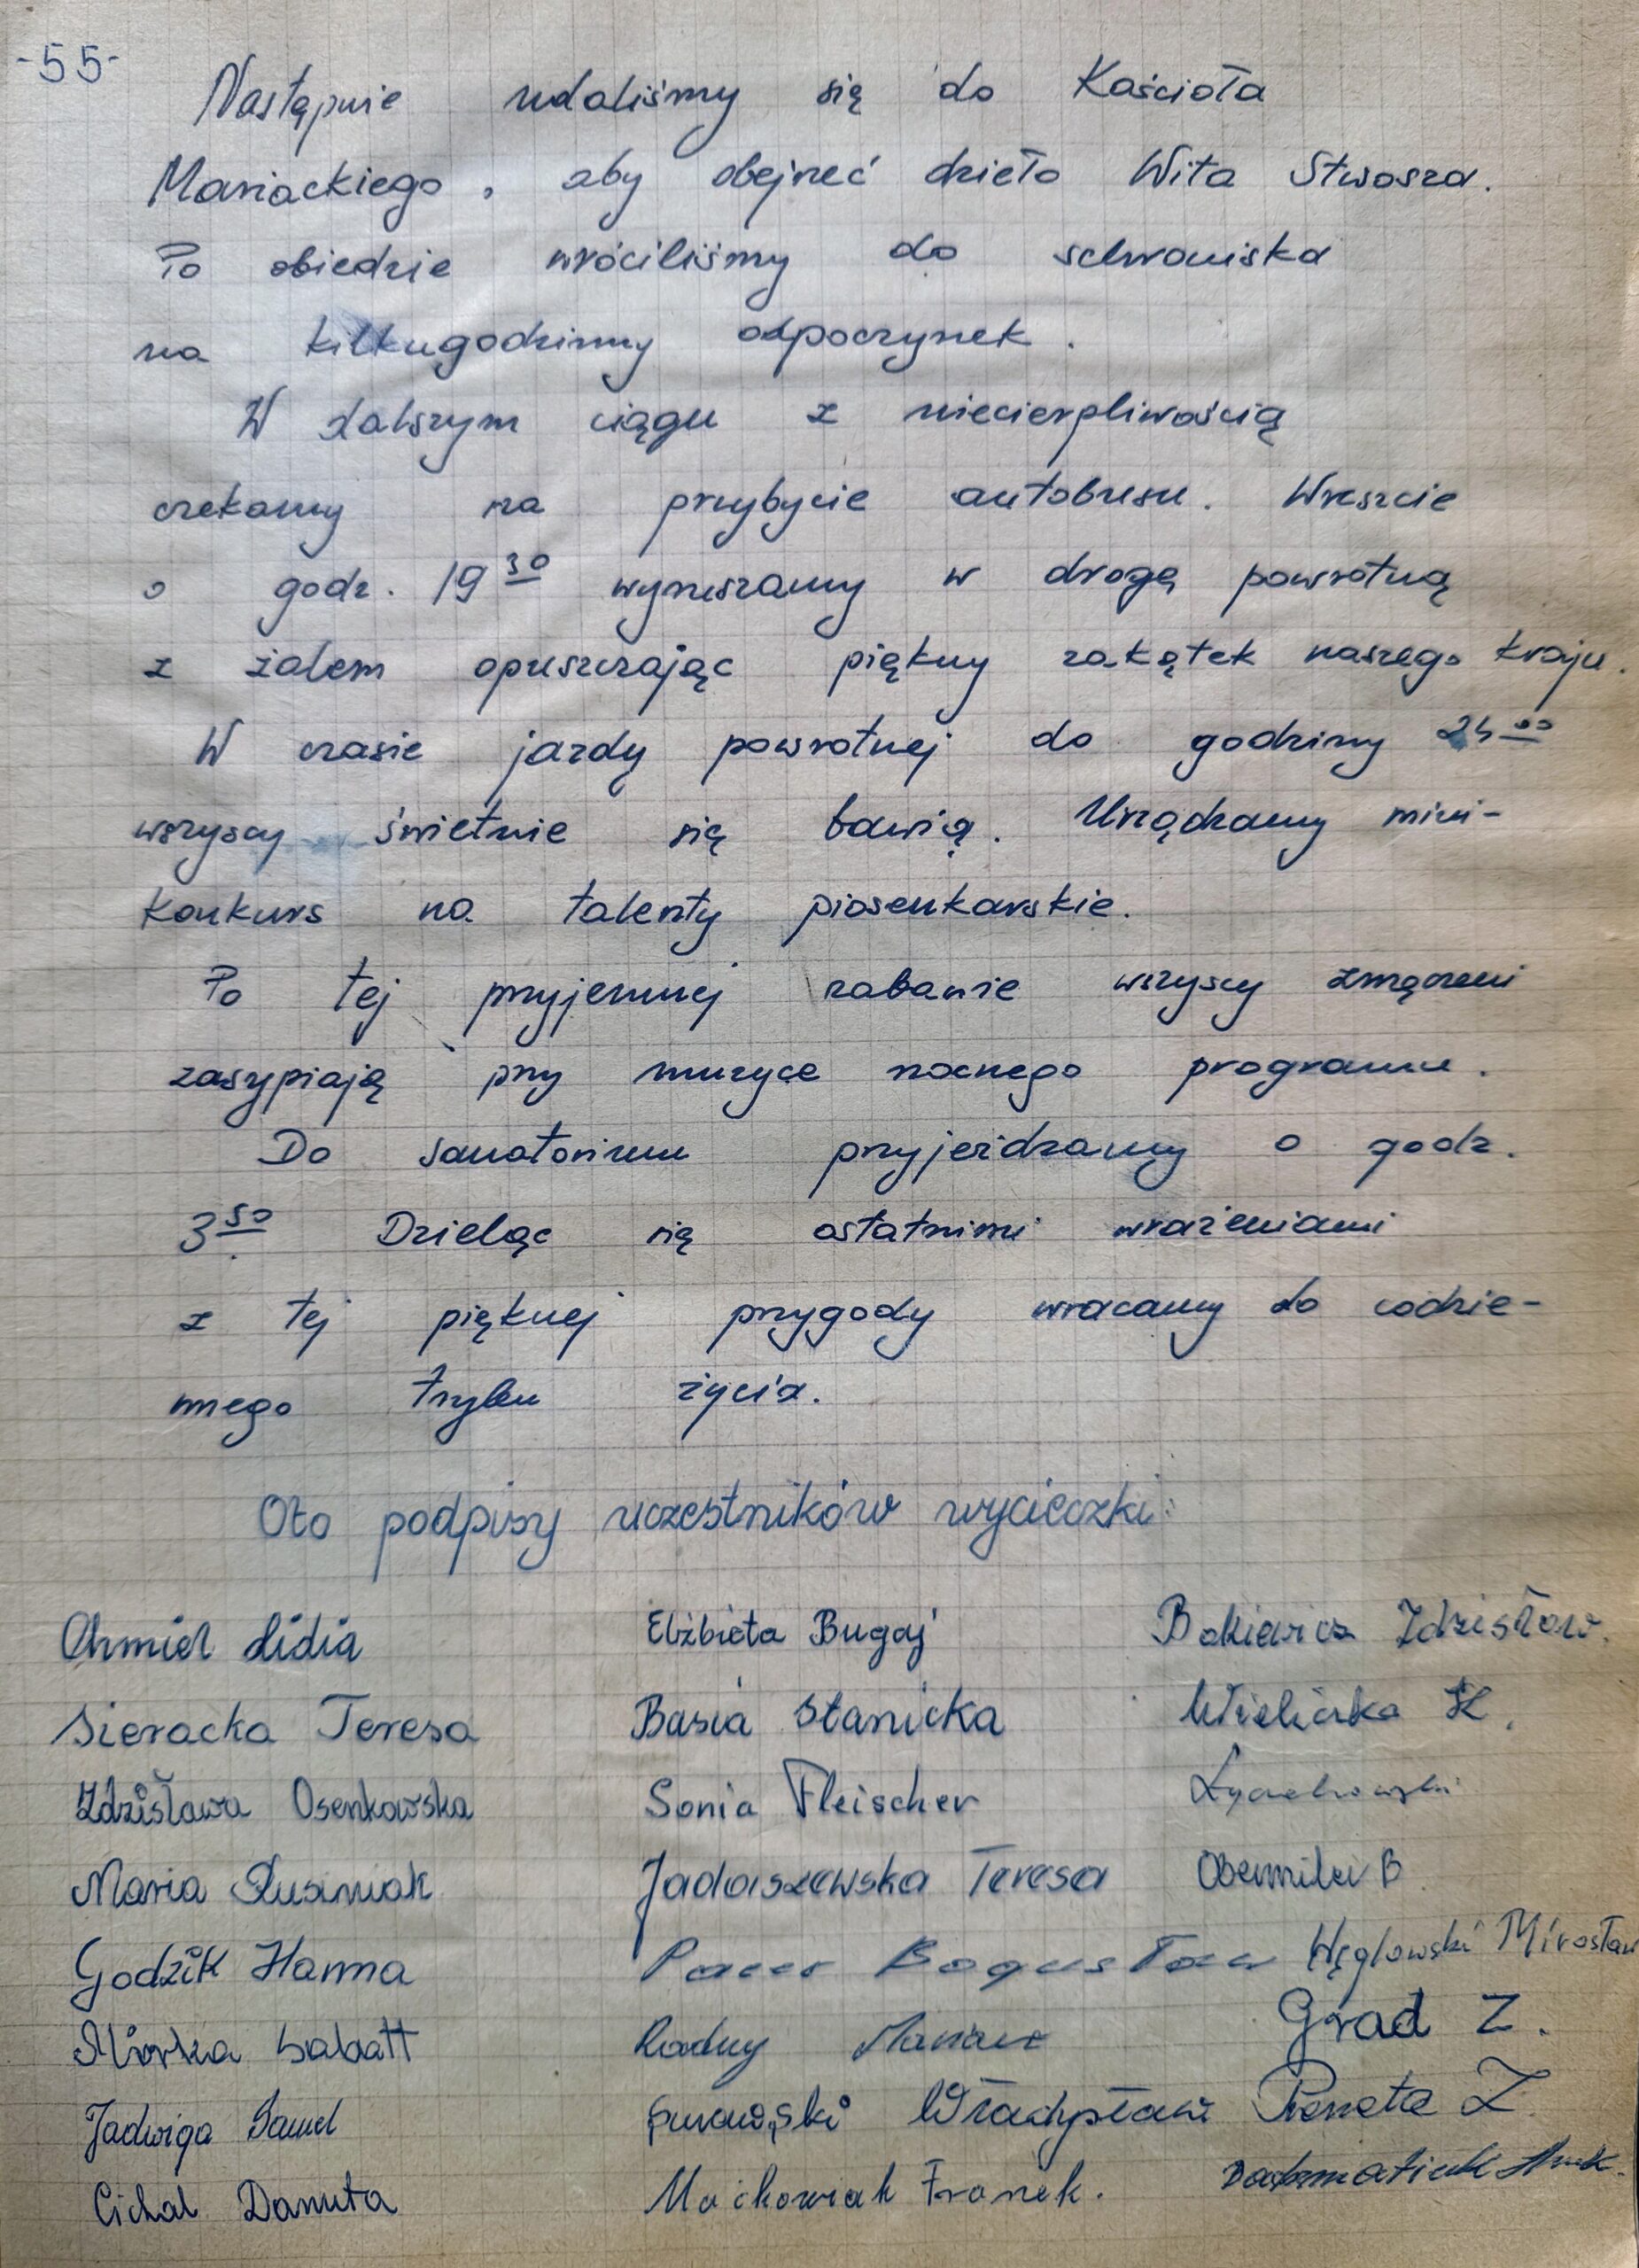 -55-
Następnie udaliśmy się do Kościoła
Mariackiego, aby obejrzeć dzieło Wita Stwosza.
Po obiedzie wróciliśmy do schroniska
na kilkugodzinny odpoczynek.
W dalszym ciągu z niecierpliwością
czekamy na przybycie autobusu. Wreszcie
o godz. 19 30 wyruszamy w drogę powrotną
z żalem opuszczając piękny zakątek naszego kraju.
W czasie jazdy powrotnej do godziny 24 00
wszyscy świetnie się bawią. Urządzamy mini-
konkurs na talenty piosenkarskie.
Po tej przyjemnej zabawie wszyscy zmęczeni
zasypiają przy muzyce nocnego programu.
Do sanatorium przyjeżdzamy o godz.
3 50 Dzieląc się ostatnimi wrażeniami
z tej pięknej przygody wracamy do codzie-
nnego trybu życia.
Oto podpisy uczestników wycieczki:
Chmiel Lidia Elżbieta Bugaj Bakiewicz Zdzisław.
Sieracka Teresa Basia Stanicka Wielicka K.
Zdzisława Osenkowska Sonia Fleischer
Maria Jadaszewska Teresa B
Godzik Hanna Bogusław Węglowski Mirosław
Mirka Grad Z.
Jadwiga Władysław Renata Z
Cichal Danuta Maćkowiak Franek.